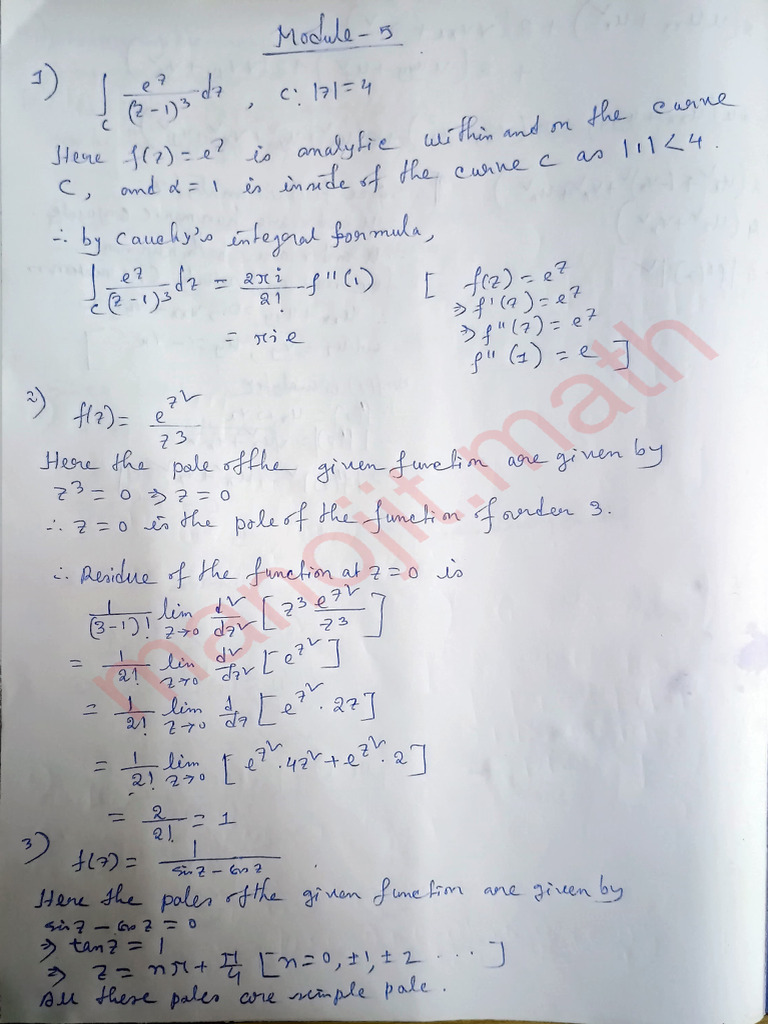 Module - 5
1) ∫_C e^z/(z-1)^3 dz , C: |z| = 4
Here f(z) = e^z is analytic within and on the curve
C, and α = 1 is inside of the curve C as |1| < 4.
∴ by Cauchy's integral formula,
∫_C e^z/(z-1)^3 dz = 2πi/2! f''(1) [ f(z) = e^z
⇒ f'(z) = e^z
⇒ f''(z) = e^z
= πi e f''(1) = e ]
2) f(z) = e^z²/z^3
Here the pole of the given function are given by
z^3 = 0 ⇒ z = 0
∴ z = 0 is the pole of the function of order 3.
∴ Residue of the function at z = 0 is
1/(3-1)! lim z→0 d²/dz² [ z^3 e^z²/z^3 ]
= 1/2! lim z→0 d²/dz² [ e^z² ]
= 1/2! lim z→0 d/dz [ e^z² · 2z ]
= 1/2! lim z→0 [ e^z² · 4z² + e^z² · 2 ]
= 2/2! = 1
3) f(z) = 1/(sin z - cos z)
Here the poles of the given function are given by
sin z - cos z = 0
⇒ tan z = 1
⇒ z = nπ + π/4 [ n = 0, ±1, ±2 ... ]
All these poles are simple pole.
manojit.math